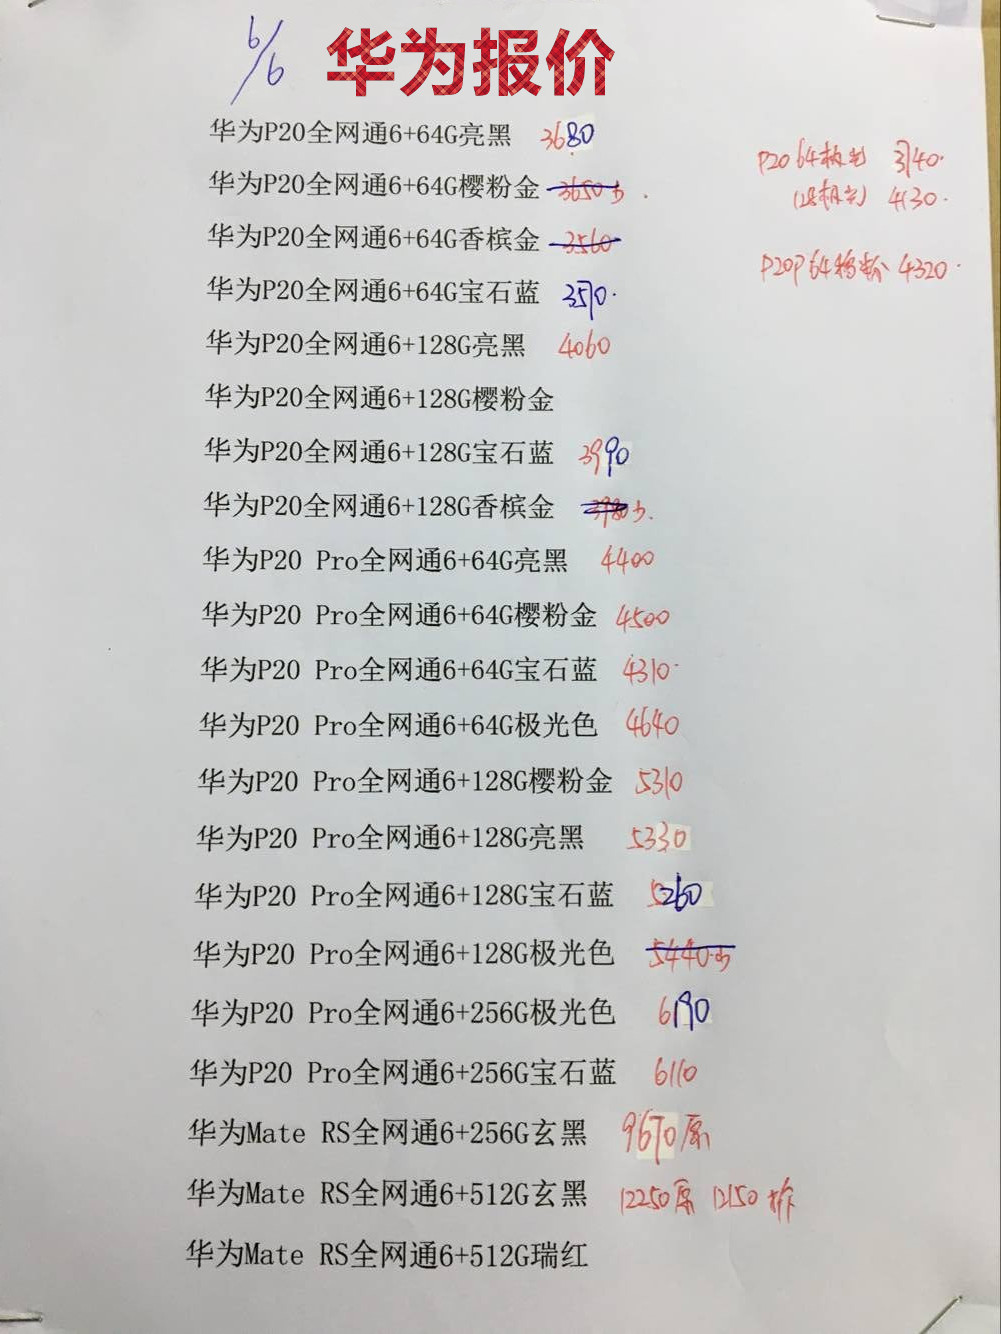 6/6 华为报价
华为P20全网通6+64G亮黑 3680
华为P20全网通6+64G樱粉金 3650
华为P20全网通6+64G香槟金 3560
华为P20全网通6+64G宝石蓝 3570.
华为P20全网通6+128G亮黑 4060
华为P20全网通6+128G樱粉金
华为P20全网通6+128G宝石蓝 3990
华为P20全网通6+128G香槟金 3980
华为P20 Pro全网通6+64G亮黑 4400
华为P20 Pro全网通6+64G樱粉金 4500
华为P20 Pro全网通6+64G宝石蓝 4310
华为P20 Pro全网通6+64G极光色 4640
华为P20 Pro全网通6+128G樱粉金 5310
华为P20 Pro全网通6+128G亮黑 5330
华为P20 Pro全网通6+128G宝石蓝 5260
华为P20 Pro全网通6+128G极光色 5440
华为P20 Pro全网通6+256G极光色 6190
华为P20 Pro全网通6+256G宝石蓝 6110
华为Mate RS全网通6+256G玄黑 9670原
华为Mate RS全网通6+512G玄黑 12250原 12150拆
华为Mate RS全网通6+512G瑞红
P20 64极光 3740.
128极光 4130.
P20P 64 粉 4320.